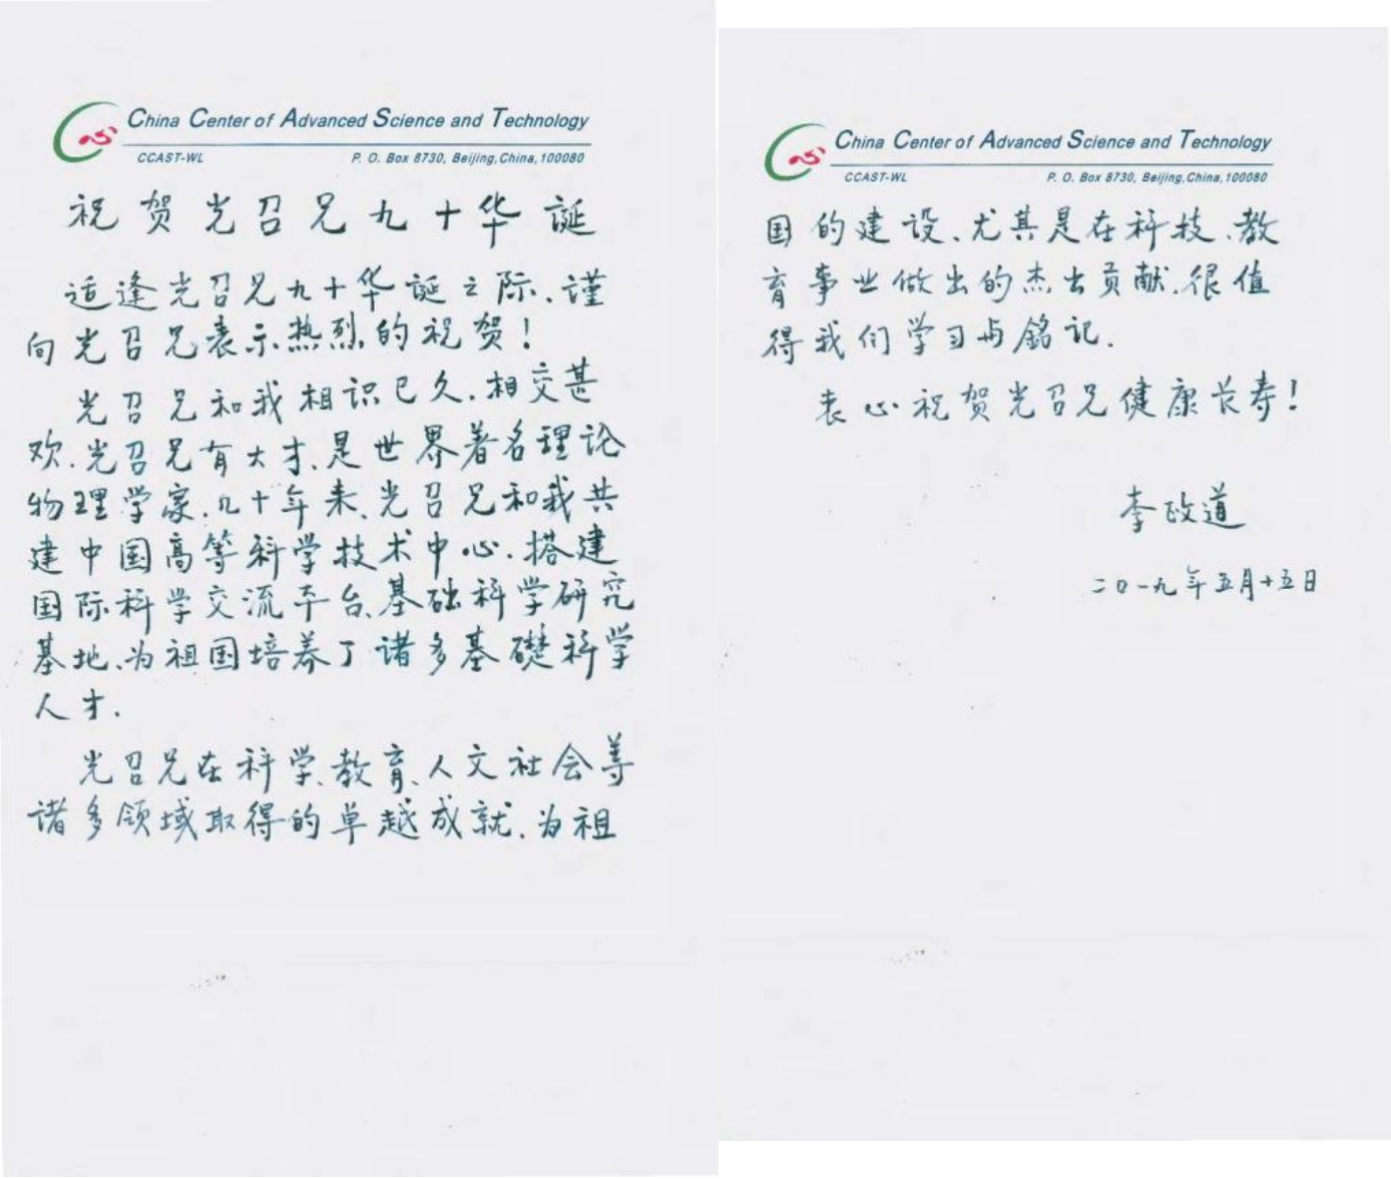 China Center of Advanced Science and Technology
CCAST-WL P. O. Box 8730, Beijing, China, 100080
祝贺光召兄九十华诞
适逢光召兄九十华诞之际、谨
向光召兄表示热烈的祝贺！
光召兄和我相识已久、相交甚
欢.光召兄有大才、是世界著名理论
物理学家.几十年来、光召兄和我共
建中国高等科学技术中心.搭建
国际科学交流平台、基础科学研究
基地、为祖国培养了诸多基礎科学
人才.
光召兄在科学、教育、人文社会等
诸多领域取得的卓越成就、为祖
China Center of Advanced Science and Technology
CCAST-WL P. O. Box 8730, Beijing, China, 100080
国的建设、尤其是在科技、教
育事业做出的杰出贡献、很值
得我们学习与銘记.
衷心祝贺光召兄健康长寿！
李政道
二〇一九年五月十五日